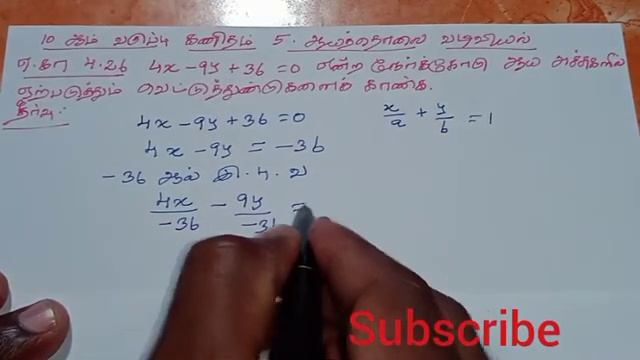 10 ஆம் வகுப்பு கணிதம் 5. ஆயத்தொலை வடிவியல்
எ.கா 4.26 4x - 9y + 36 = 0 என்ற நேர்க்கோடு ஆய அச்சுகளில்
ஏற்படுத்தும் வெட்டுத்துண்டுகளைக் காண்க.
தீர்வு:
4x - 9y + 36 = 0
x/a + y/b = 1
4x - 9y = -36
-36 ஆல் இ.பு.வ
4x/-36 - 9y/-36 =
Subscribe